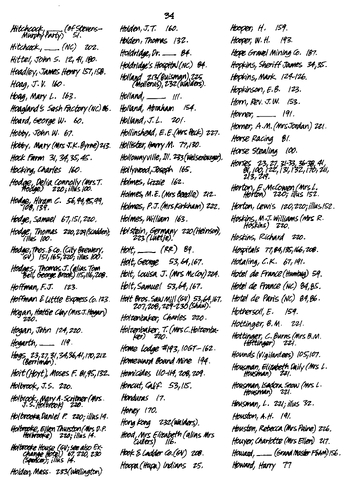 34
Hitchcock, ___ (of Stevens-
Murphy Party) 51.
Hitchcock, ___ (NC) 202.
Hittel, John S. 12, 41, 180.
Hoadley, James Henry 157, 158.
Hoag, J.V. 160.
Hoag, Mary L. 163.
Hoagland's Sash Factory (NC) 86.
Hoard, George W. 60.
Hobby, John W. 67.
Hobby, Mary (Mrs J.K. Byrne) 213.
Hock Farm 31, 34, 35, 45.
Hocking, Charles 160.
Hodge, Delia Connolly (Mrs T.
Hodge, Hiram C.
Hodge, Samuel 67, 151, 220.
Hodge, Thomas
Hodges, Thomas J. (alias Tom
Bell, George Brook) 115, 116, 208.
Hoffman, F.J. 123.
Hoffman & Little Express Co. 123.
Hogan, Hattie Clay (Mrs J. Hogan)
220.
Hogan, John 124, 220.
Hogarth, ___ 119.
Hogs, 23, 27, 31, 34, 36, 41, 170, 212
(Berriman).
Hoit (Hort), Moses F. 81, 95, 132.
Holbrook, J.S. 220.
Holbrook, Mary A. Scritner (Mrs
J.S. Holbrook) 220.
Holbrooke, Daniel P. 220; illus 14.
Holbrooke, Ellen Thurston (Mrs D.P.
Holbrooke) 220; illus 14.
Holbrooke House (GV; see also Ex-
change Hotel) 67, 220, 230
(Spencer); illus 14.
Holden, Mess. 233 (Wellington)
Holden, J.T. 160.
Holden, Thomas 132.
Holdridge, Dr. ___ 84.
Holdridge's Hospital (NC) 84.
Holland, ___ 111.
Holland, Abraham 154.
Holland, J.L. 201.
Hollinshead, E.E. (Mrs Peck) 227.
Hollister, Harry M. 77, 130.
Hollowayville, Ill. 233 (Weisenburger).
Hollywood, Joseph 165.
Holmes, Lizzie 162.
Holmes, M.E. (Mrs Beadle) 212.
Holmes, P.J. (Mrs Kirkham) 222.
Holmes, William 163.
Holstein, Germany 220 (Heinson),
Holt, ___ (RR) 89.
Holt, George 53, 64, 167.
Holt, Louisa J. (Mrs McCoy) 224.
Holt, Samuel 53, 64, 167.
Holt Bros. Saw Mill (GV) 53, 64, 167,
207, 208, 229-230 (Shaw).
Holzenbaker, Charles 220.
Holzenbaker, T. (Mrs C. Holzenba-
ker) 220.
Home Lodge #193, IOGT 162.
Homeward Bound Mine 194.
Homicides 110-114, 208, 209.
Honcut, Calif 53, 115.
Honduras 17.
Honey 170.
Hong Kong 232 (Walders).
Hood, Mrs Elizabeth (alias Mrs
Cutlers) 116.
Hook & Ladder Co. (GV) 208.
Hoopa (Hupa) Indians 25.
Hooper, H. 159.
Hooper, W.H. 192.
Hope Gravel Mining Co. 187.
Hopkins, Sheriff James 34, 35.
Hopkins, Mark 124-126.
Hopkinson, E.B. 123.
Horn, Rev. J.W. 153.
Horner, ___ 191.
Horner, A.M. (Mrs Jordan) 221.
Horse Racing 81.
Horse Stealing 100.
Horses
Horton, E. McCowen (Mrs L.
Horton) 220; illus 152.
Horton, Lewis 120, 220; illus 152.
Hoskins, M.J. Williams (Mrs R.
Hoskins) 220.
Hoskins, Richard 220.
Hospitals 77, 84, 185, 166, 208.
Hotaling, C.K. 67, 191.
Hotel de France (Humbug) 59.
Hotel de France (NC) 84, 85.
Hotel de Paris (NC) 84, 86.
Hothersoll, E. 159.
Hottinger, B.M. 221.
Hottinger, C. Burns (Mrs B.M.
Hottinger) 221.
Hounds (Vigilantes) 105, 107.
Housman, Elizabeth Daily (Mrs L.
Housman) 221.
Housman, Isadora Snow (Mrs L.
Housman) 221.
Housman, L. 221; illus 32.
Houston, A.H. 191.
Houston, Rebecca (Mrs Paine) 226.
Houyer, Charlotte (Mrs Ellen) 217.
Howard, ___ (Grand Master F&AM) 156.
Howard, Harry 77